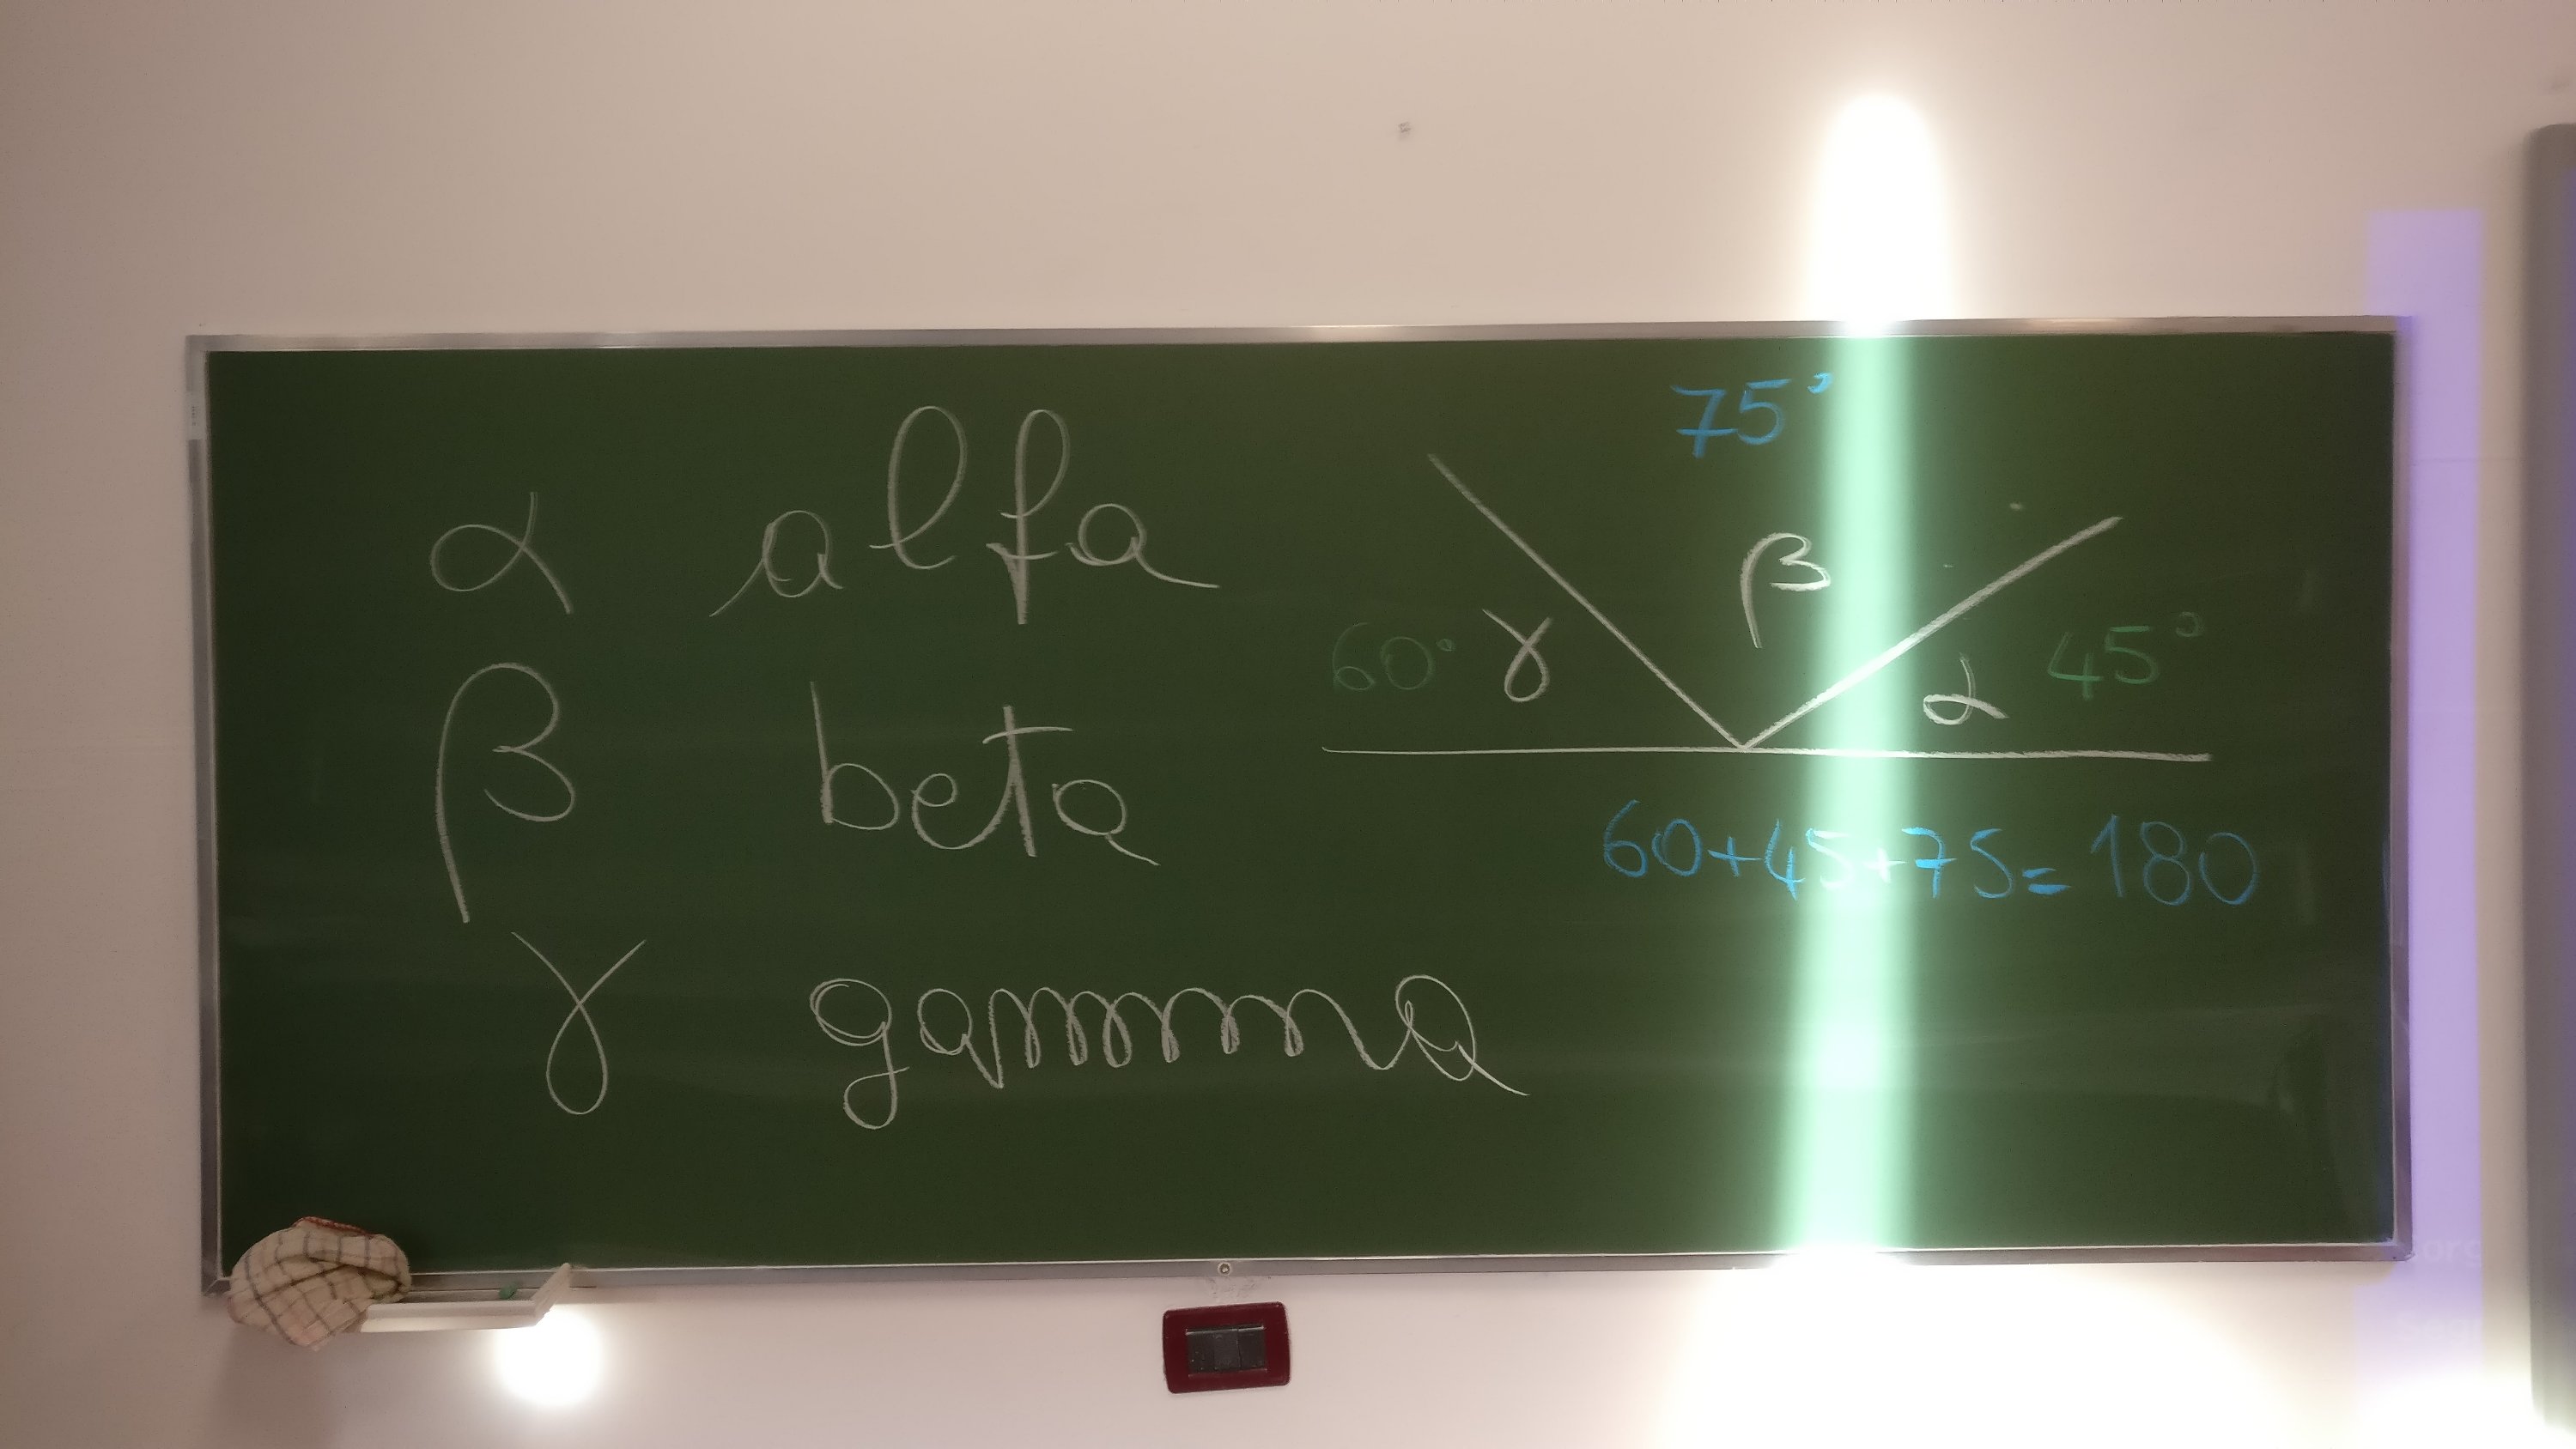 α alfa
β beta
γ gamma
75°
β
60° γ
α 45°
60+45+75=180